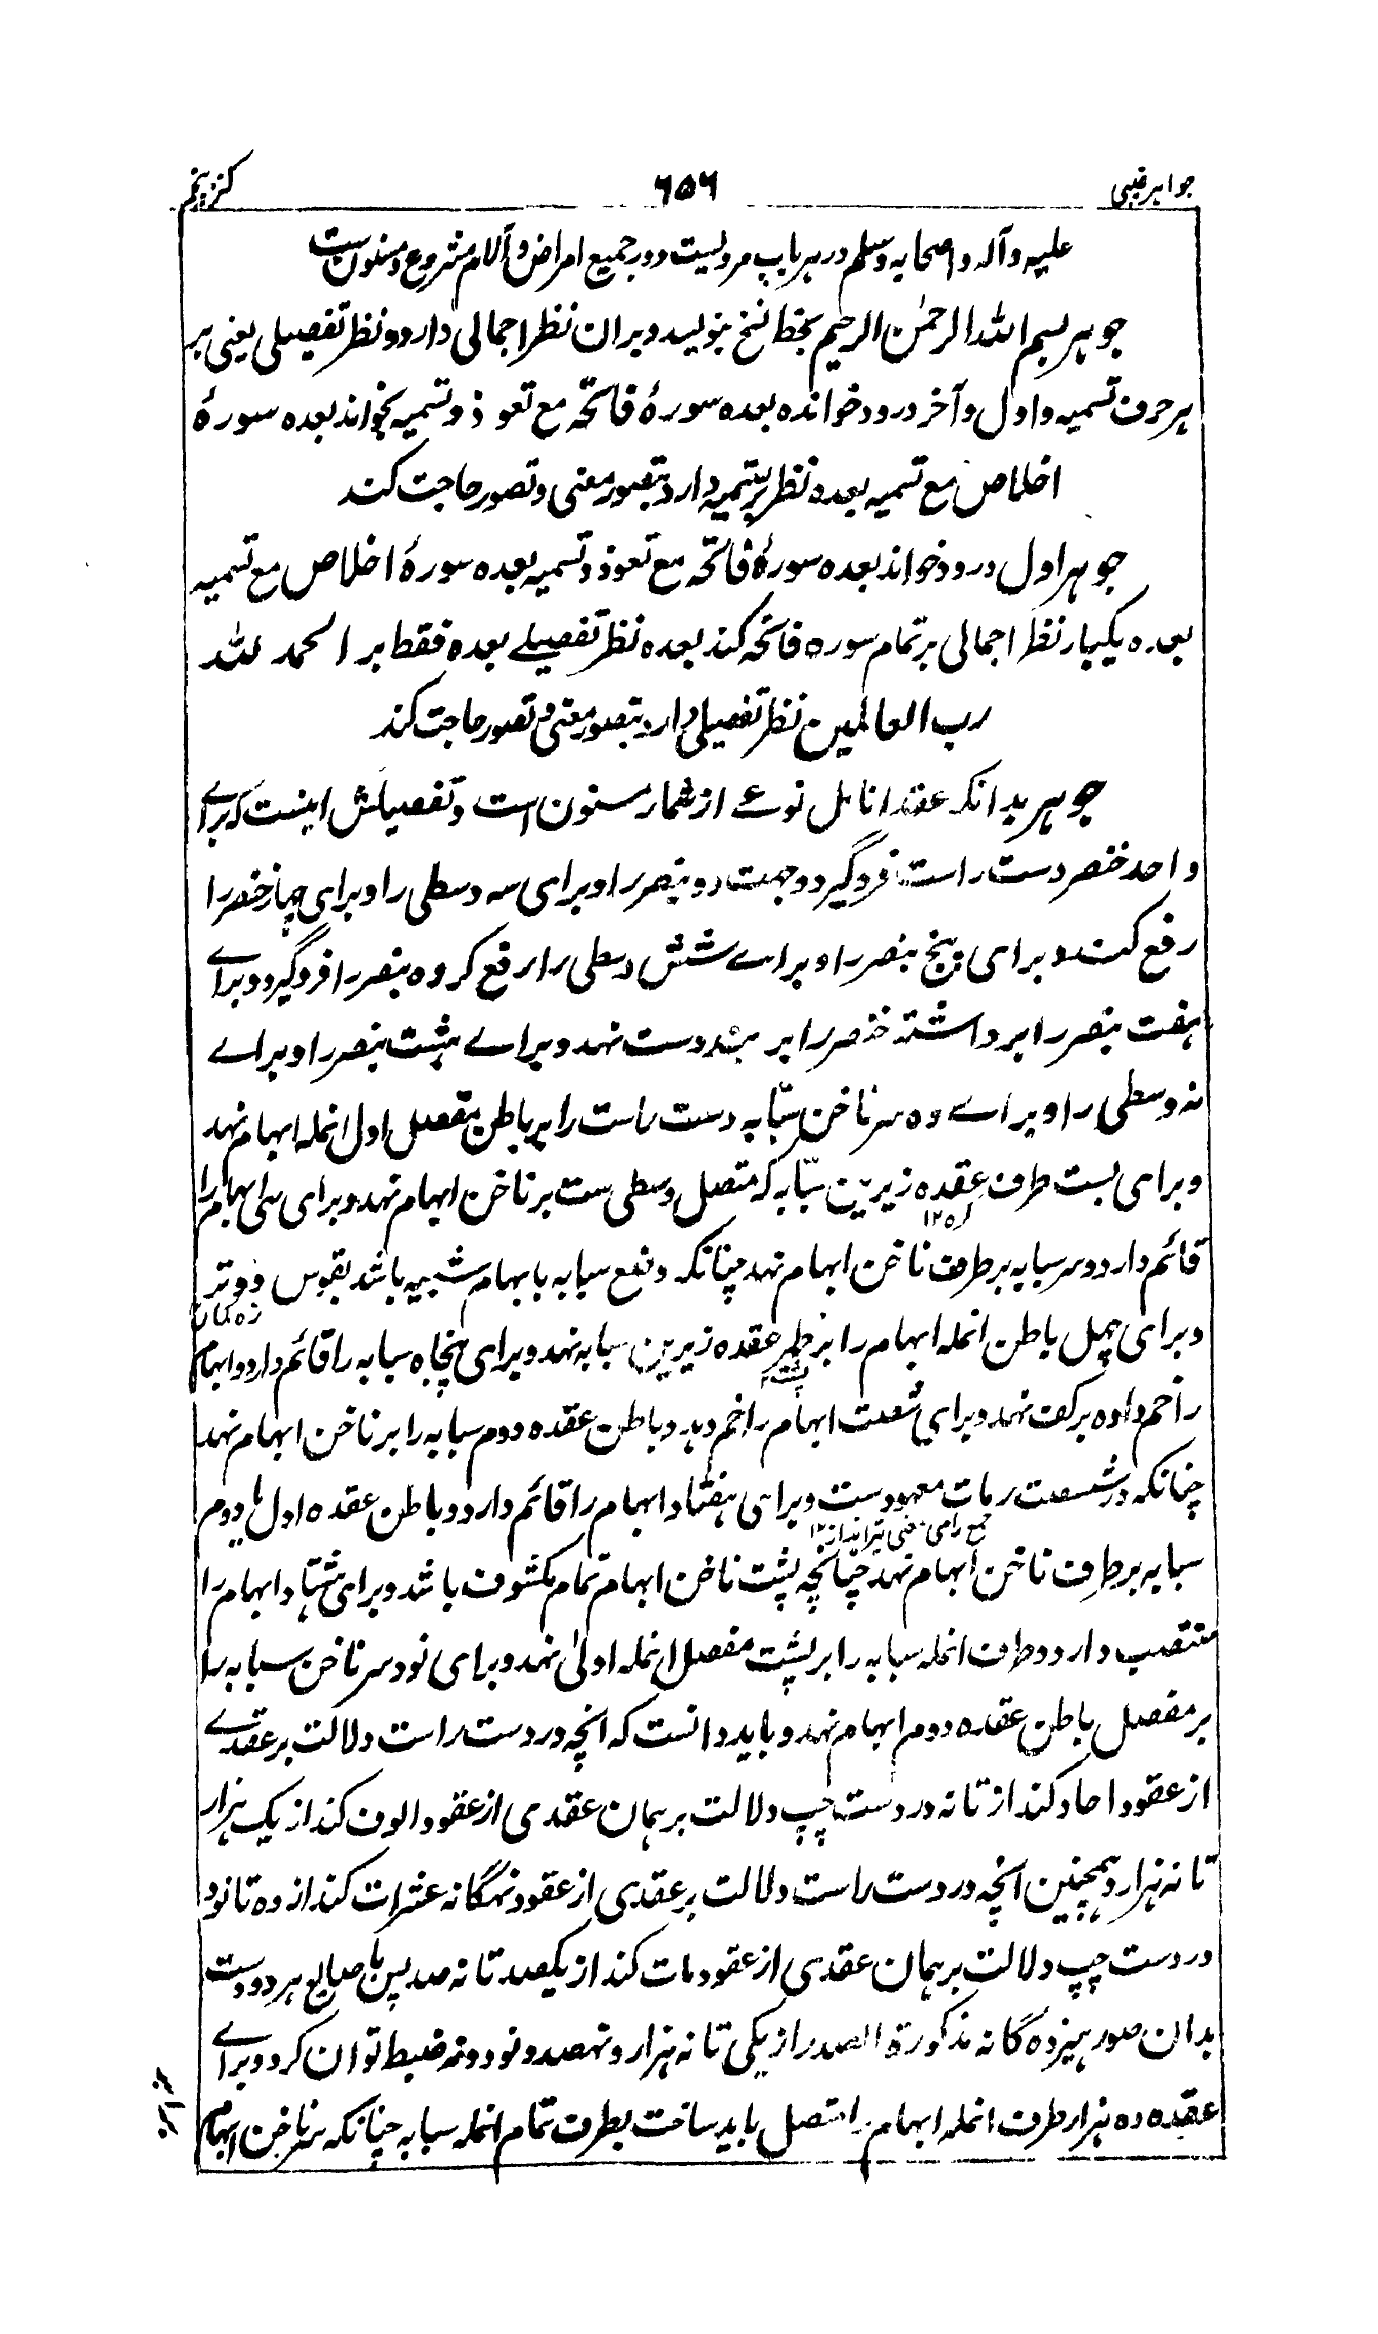 جواهر غیبی
۶۵۶
کنز پنجم
علیه وآله واصحابه وسلم در هر باب مرویست ودر جمیع امراض وآلام مشروع ومسنون ست
جوهر بسم الله الرحمٰن الرحیم بخط نسخ بنویسد وبران نظر اجمالی دارد ونظر تفصیلی یعنی بر
هر حرف تسمیه واول وآخر درود خوانده بعده سورۀ فاتحه مع تعوذ وتسمیه بخواند بعده سورۀ
اخلاص مع تسمیه بعده نظر بر تسمیه دارد بتصور معنی وتصور حاجت کند
جوهر اول درود خواند بعده سورۀ فاتحه مع تعوذ وتسمیه بعده سورۀ اخلاص مع تسمیه
بعده یکبار نظر اجمالی بر تمام سوره فاتحه کند بعده نظر تفصیلے بعده فقط بر الحمد لله
رب العالمین نظر تفصیلی دارد بتصور معنی وتصور حاجت کند
جوهر بدانکه عقد انامل نوعے از شمار مسنون است وتفصیلش اینست که براے
واحد خنصر دست راست فروگیرد وجهت دو بنصر را وبرای سه وسطی را وبرای چهار خنصر را
رفع کند وبرای پنج بنصر را وبراے شش وسطی را رفع کرده بنصر را فروگیرد وبراے
هفت بنصر را برداشته خنصر را بر بند دست نهد وبراے هشت بنصر را وبراے
نه وسطی را وبراے ده سر ناخن سبّابه دست راست را بر باطن مفصل اول انمله ابهام نهد
وبرای بست طرف عقده زیرین سبّابه که متصل وسطی ست بر ناخن ابهام نهد وبرای سی ابهام را
قائم دارد وسر سبابه بر طرف ناخن ابهام نهد چنانکه وضع سبابه با ابهام شبیه باشد بقوس ووتر
زه کمان
وبرای چهل باطن انمله ابهام را بر ظهر عقده زیرین سبابه نهد وبرای پنجاه سبابه را قائم دارد وابهام
پشت
را خم داده بر کف نهد وبرای شصت ابهام را خم دهد وباطن عقده دوم سبابه را بر ناخن ابهام نهد
چنانکه در شصت رمات معهودست وبرای هفتاد ابهام را قائم دارد وباطن عقده اول یا دوم
جمع رامی بمعنی تیر انداز ۱۲
سبابه بر طرف ناخن ابهام نهد چنانچه پشت ناخن ابهام تمام مکشوف باشد وبرای هشتاد ابهام را
منتصب دارد وطرف انمله سبابه را بر پشت مفصل انمله اولیٰ نهد وبرای نود سر ناخن سبابه را
بر مفصل باطن عقده دوم ابهام نهد وباید دانست که انچه در دست راست دلالت بر عقدے
از عقود احاد کند از تا نه در دست چپ دلالت بر همان عقدی از عقود الوف کند از یک هزار
تا نه هزار وهمچنین انچه در دست راست دلالت بر عقدی از عقود نهگانه عشرات کند از ده تا نود
در دست چپ دلالت بر همان عقدی از عقود مات کند از یکصد تا نه صد پس باصابع هر دو دست
بدان صور هیژده گانه مذکورة الصدر از یکی تا نه هزار ونهصد ونود ونه ضبط توان کرد وبراے
عقده ده هزار طرف انمله ابهام را متصل باید ساخت بطرف تمام انمله سبابه چنانکه سر ناخن ابهام